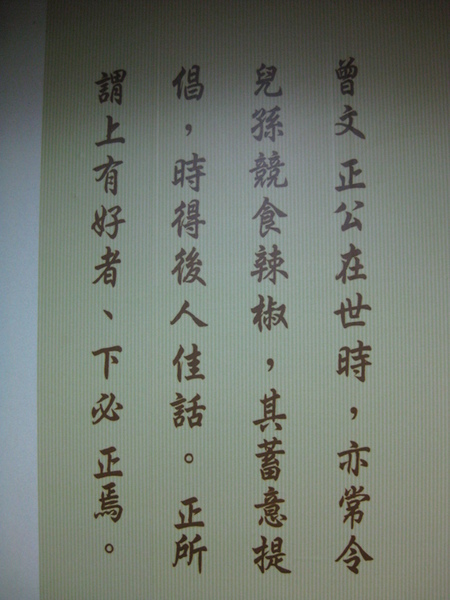 曾文正公在世時，亦常令
兒孫競食辣椒，其蓄意提
倡，時得後人佳話。正所
謂上有好者、下必正焉。